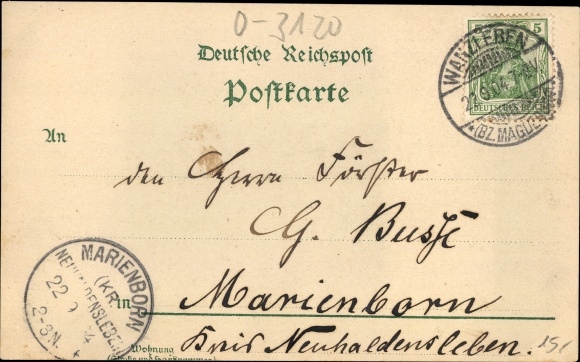 0-3120
Deutsche Reichspost
Postkarte
5
WANZLEBEN
DEUTSCHES REICH
*(BZ. MAGDEBURG)
An
den Herrn Förster
G. Busse
in Marienborn
Kreis Neuhaldensleben.
Wohnung
MARIENBORN
(KR.
NEUHALDENSLEBEN)
22 9
2-3N.